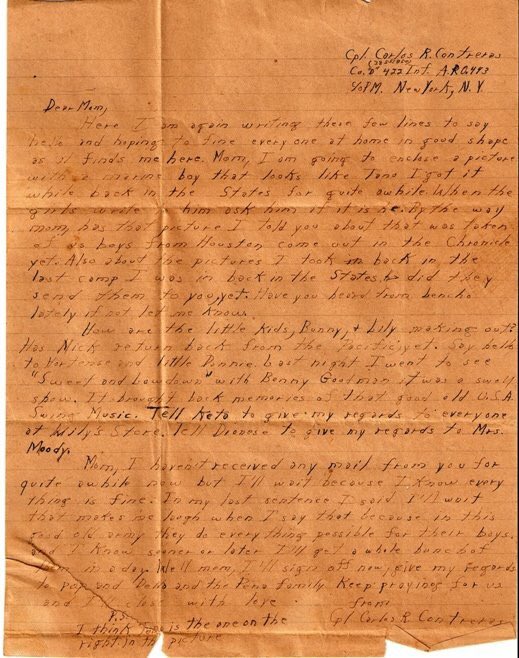 Cpl. Carlos R. Contreras
Co. "D" 422 Inf. A.P.O. 443
℅ P.M. New York, N.Y
Dear Mom,
Here I am again writing these few lines to say
hello and hoping to fine everyone at home in good shape
as it finds me here. Mom, I am going to enclose a picture
with a marine boy that looks like Tano I got it
while back in the States for quite awhile. When the
girls write him ask him if it is he. By the way
mom, has that picture I told you about that was taken
of us boys from Houston come out in the Chronicle
yet. Also about the pictures I took in back in the
last camp I was in back in the States, did they
send them to you yet. Have you heard from
lately if not let me know.
How are the little kids, Bonny, & Lily making out?
Has Nick return back from the Pacific yet. Say hello
to Hortense and little Ponnie. Last night I went to see
"Sweet and Lowdown" with Benny Goodman it was a swell
show. It brought back memories of that good old U.S.A
Swing Music. Tell Keta to give my regards to everyone
at Willy's Store. Tell Dionese to give my regards to Mrs.
Moody.
Mom, I haven't received any mail from you for
quite awhile now but I'll wait because I know every
thing is fine. In my last sentence I said I'll wait
that makes me laugh when I say that because in this
good old army they do everything possible for their boys.
I know sooner or later I'll get a whole bunch of
them in a day. Well mom, I'll sign off now, give my regards
to Pop, and and the Pena family. Keep praying for us
and I close with love from
Cpl Carlos R. Contreras
P.S.
I think Tano is the one on the
right. In the picture